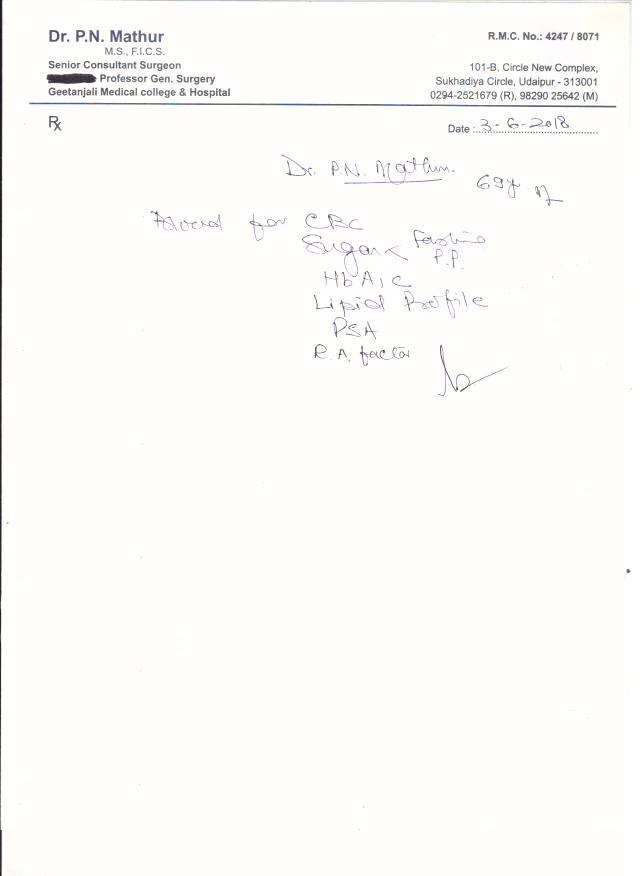 Dr. P.N. Mathur
M.S., F.I.C.S.
Senior Consultant Surgeon
Professor Gen. Surgery
Geetanjali Medical college & Hospital
R.M.C. No.: 4247 / 8071
101-B, Circle New Complex,
Sukhadiya Circle, Udaipur - 313001
0294-2521679 (R), 98290 25642 (M)
℞
Date : 3-6-2018
Dr. P.N. Mathur. 69y. M
for CBC
Sugar < Fasting
P.P.
HbA1C
Lipid Profile
PSA
R.A. factor